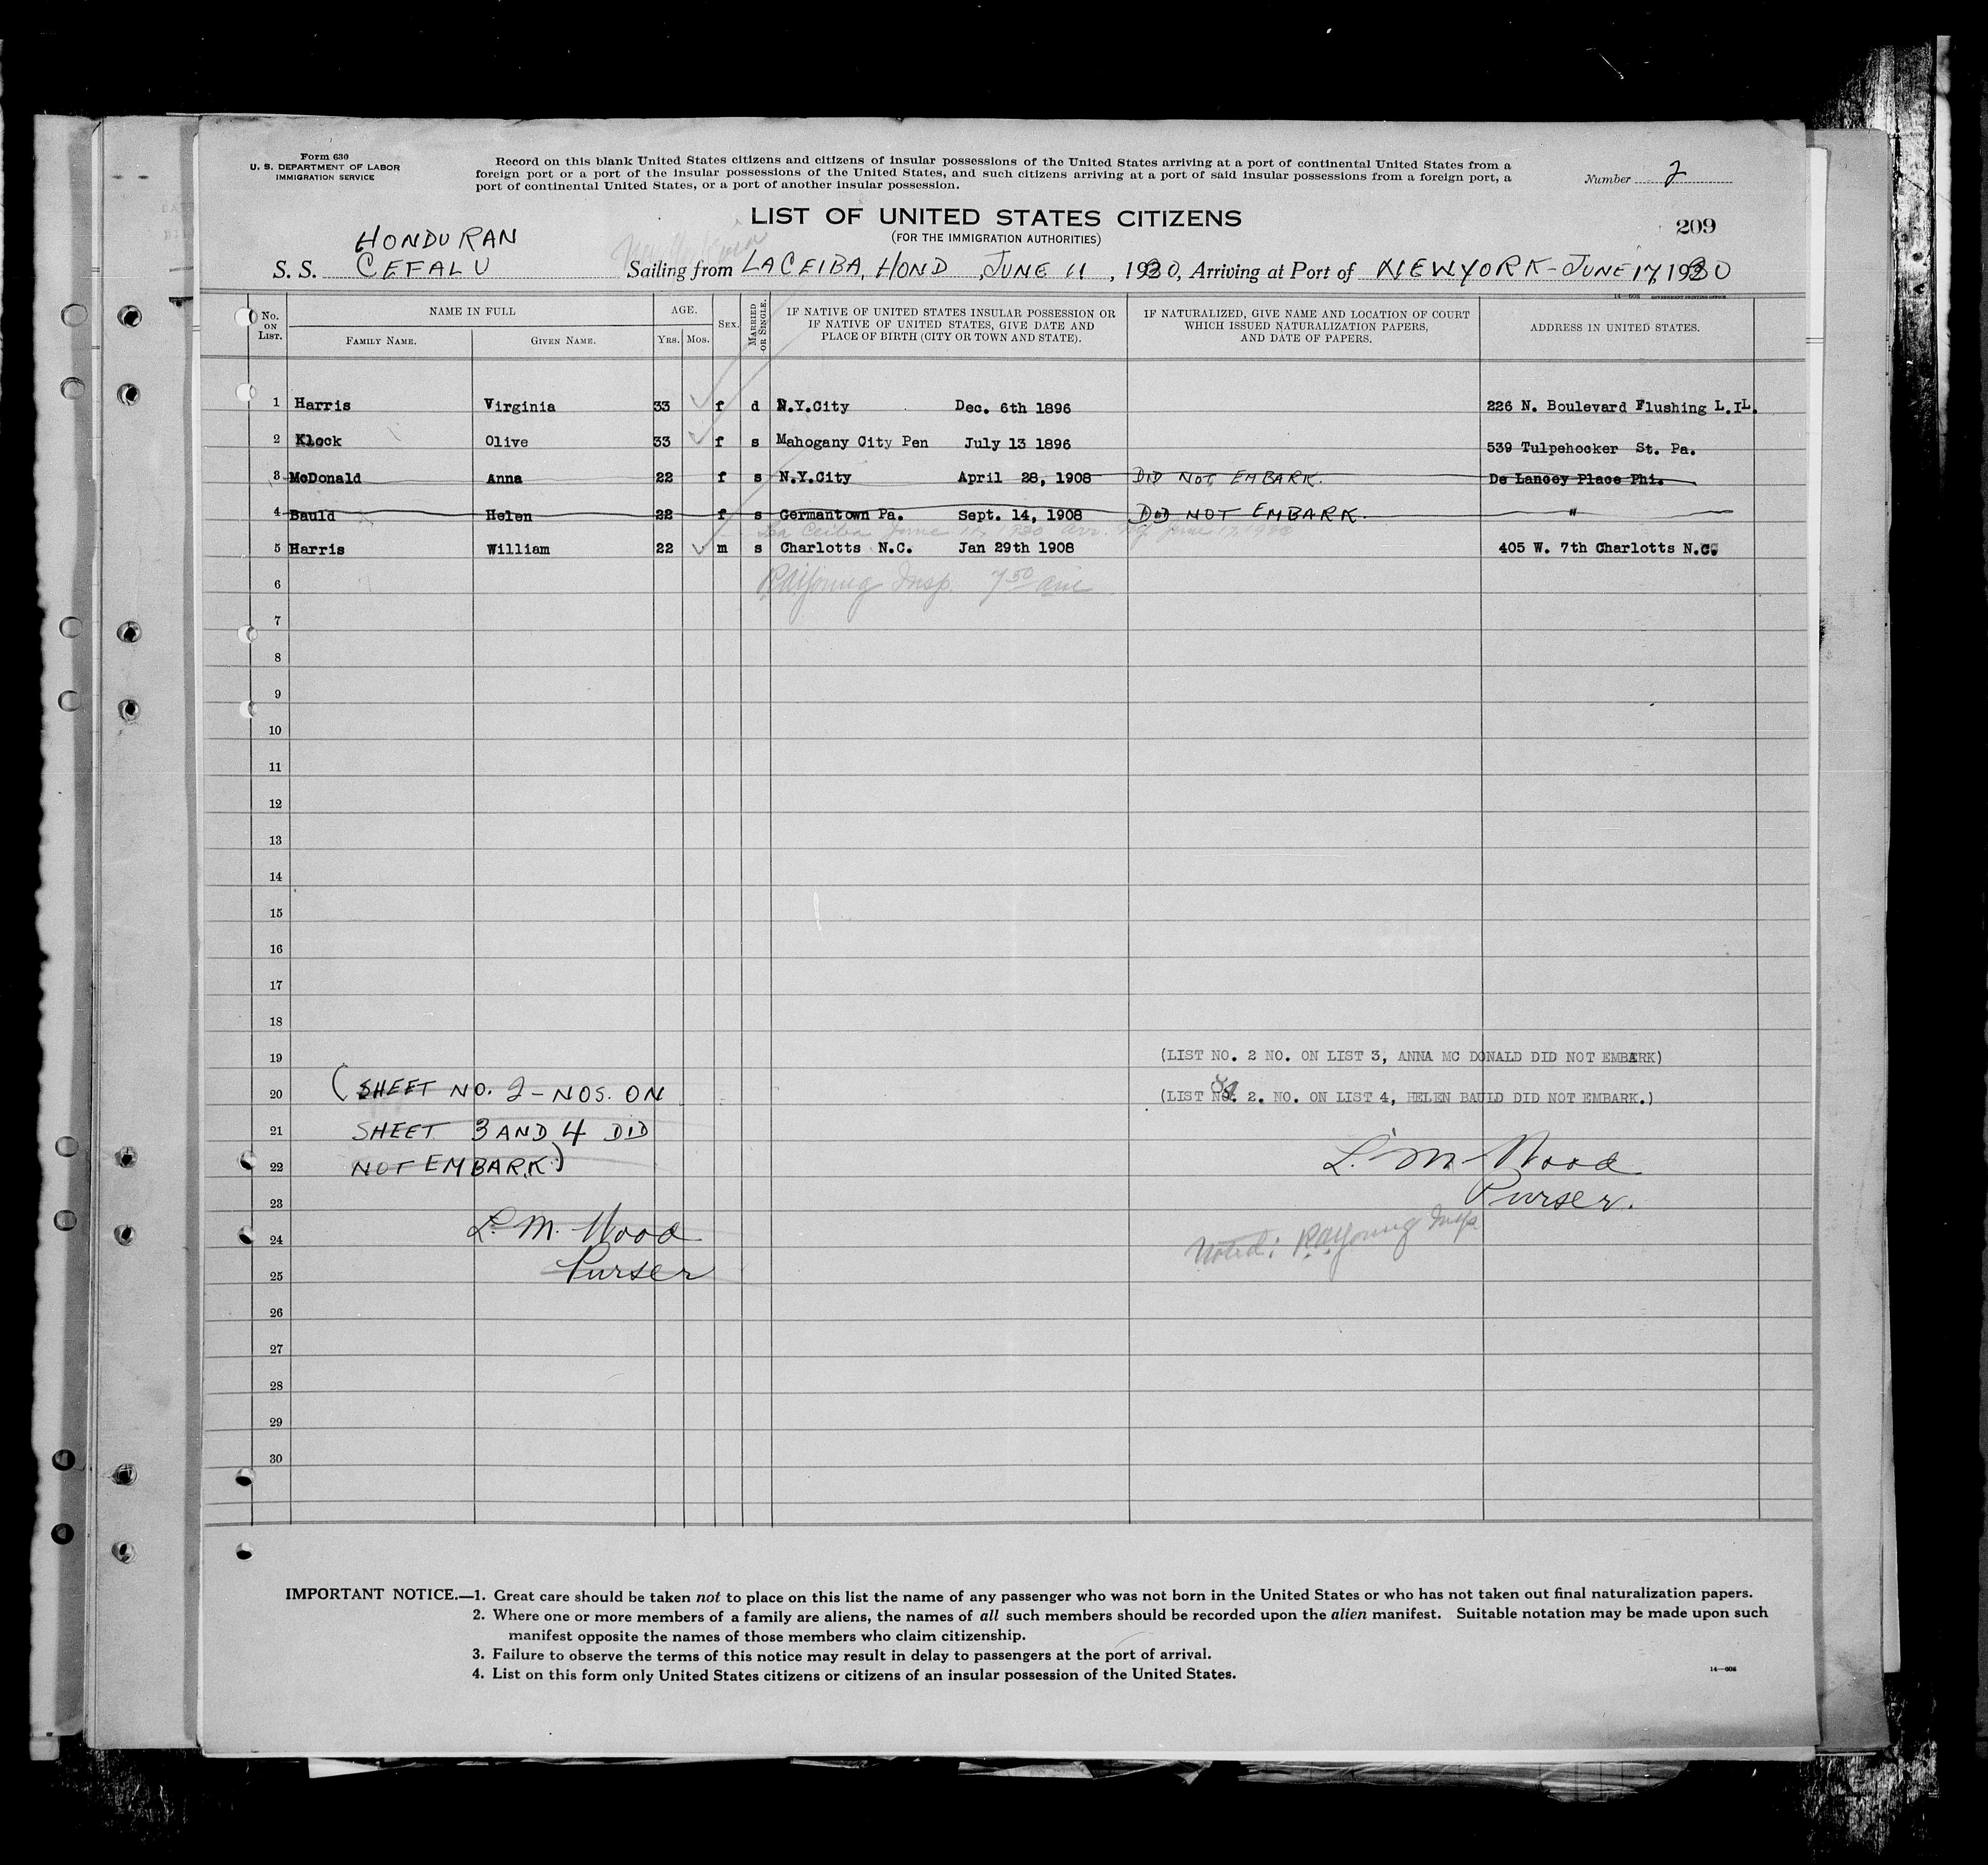 Form 630
U. S. DEPARTMENT OF LABOR
IMMIGRATION SERVICE
Record on this blank United States citizens and citizens of insular possessions of the United States arriving at a port of continental United States from a
foreign port or a port of the insular possessions of the United States, and such citizens arriving at a port of said insular possessions from a foreign port, a
port of continental United States, or a port of another insular possession.
Number 2
LIST OF UNITED STATES CITIZENS
(FOR THE IMMIGRATION AUTHORITIES)
209
HONDURAN
S. S. CEFALU Sailing from LACEIBA, HOND, JUNE 11, 1930, Arriving at Port of NEWYORK-JUNE 17, 1930
14—608 GOVERNMENT PRINTING OFFICE
No. ON LIST. NAME IN FULL AGE. SEX. MARRIED OR SINGLE. IF NATIVE OF UNITED STATES INSULAR POSSESSION OR IF NATIVE OF UNITED STATES, GIVE DATE AND PLACE OF BIRTH (CITY OR TOWN AND STATE). IF NATURALIZED, GIVE NAME AND LOCATION OF COURT WHICH ISSUED NATURALIZATION PAPERS, AND DATE OF PAPERS. ADDRESS IN UNITED STATES.
FAMILY NAME. GIVEN NAME. YRS. MOS.
1 Harris Virginia 33 f d N.Y.City Dec. 6th 1896 226 N. Boulevard Flushing L.IL.
2 Klock Olive 33 f s Mahogany City Pen July 13 1896 539 Tulpehocker St. Pa.
3 McDonald Anna 22 f s N.Y.City April 28, 1908 DID NOT EMBARK. De Lancey Place Phi.
4 Bauld Helen 22 f s Germantown Pa. Sept. 14, 1908 DID NOT EMBARK. "
La Ceiba June 11, 1930 arr. N.Y. June 17, 1930
5 Harris William 22 m s Charlotts N.C. Jan 29th 1908 405 W. 7th Charlotts N.C.
6 Insp. 7 50 am
7
8
9
10
11
12
13
14
15
16
17
18
19 (LIST NO. 2 NO. ON LIST 3, ANNA MC DONALD DID NOT EMBARK)
20 (SHEET NO. 2 - NOS. ON (LIST NO. 2. NO. ON LIST 4, HELEN BAULD DID NOT EMBARK.)
21 SHEET 3 AND 4 DID
22 NOT EMBARK.) L. M. Wood
23 Purser.
24 L. M. Wood Noted: Insp.
25 Purser
26
27
28
29
30
IMPORTANT NOTICE.—1. Great care should be taken not to place on this list the name of any passenger who was not born in the United States or who has not taken out final naturalization papers.
2. Where one or more members of a family are aliens, the names of all such members should be recorded upon the alien manifest. Suitable notation may be made upon such
manifest opposite the names of those members who claim citizenship.
3. Failure to observe the terms of this notice may result in delay to passengers at the port of arrival.
4. List on this form only United States citizens or citizens of an insular possession of the United States.
14—608